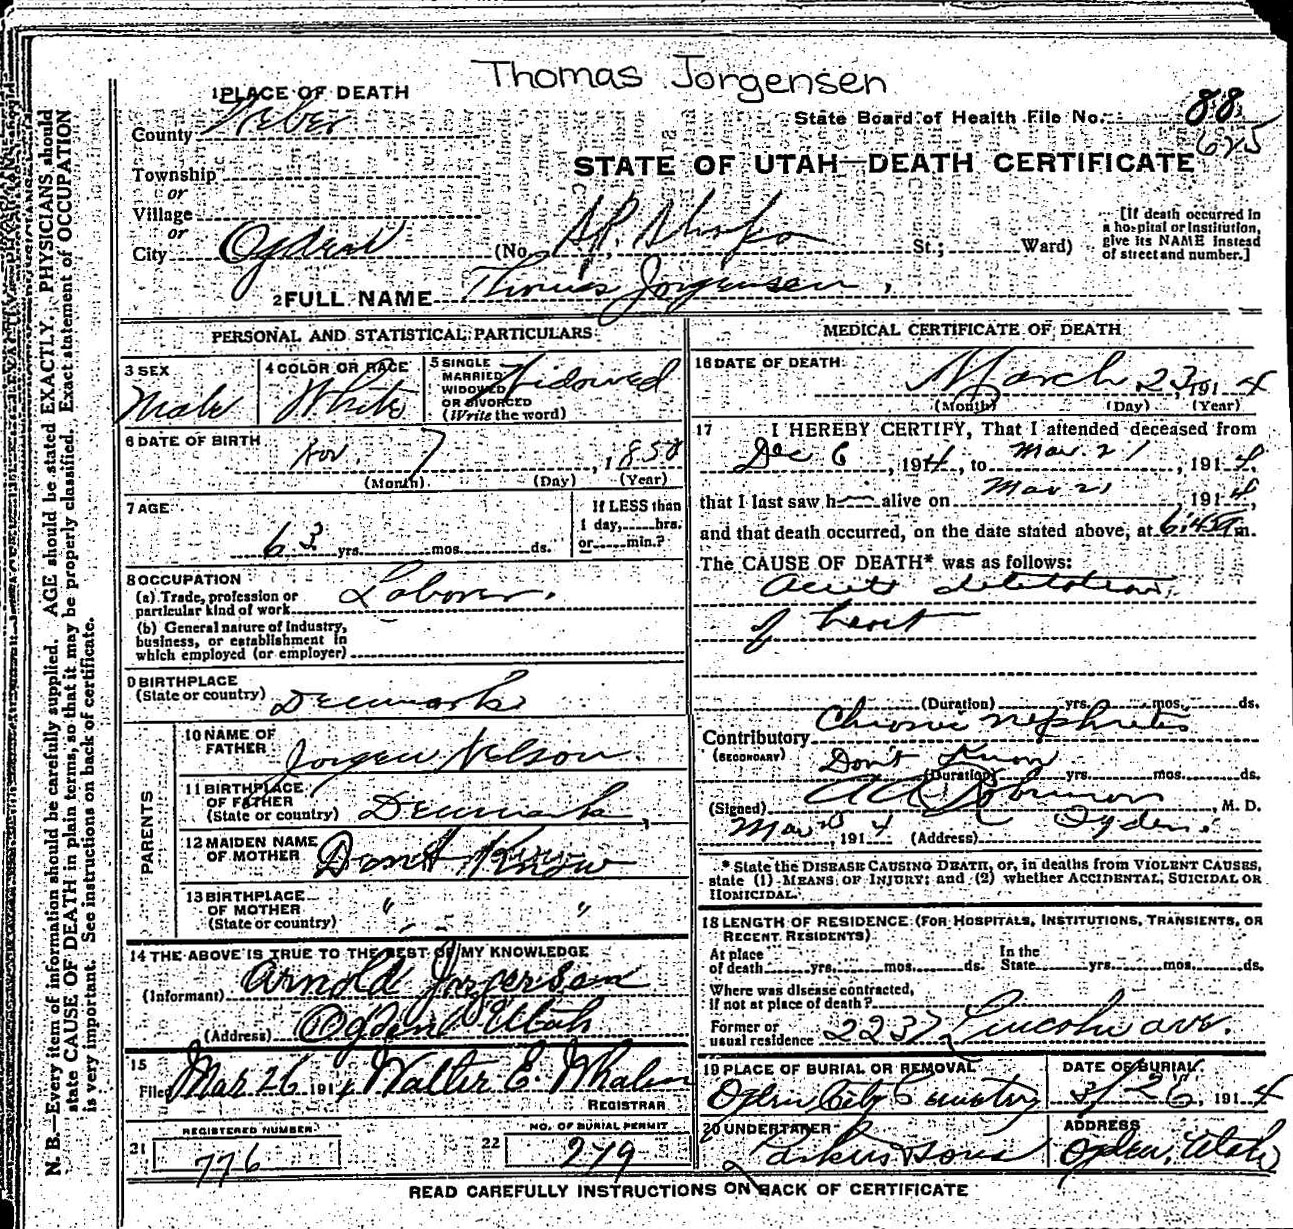 Thomas Jorgensen
1 PLACE OF DEATH
County Weber
State Board of Health File No. 88
625
Township
or
Village
or
City Ogden
STATE OF UTAH—DEATH CERTIFICATE
(No. S.P. Shops St.; Ward)
[If death occurred in a hospital or institution, give its NAME instead of street and number.]
2 FULL NAME Thomas Jorgensen,
PERSONAL AND STATISTICAL PARTICULARS
3 SEX Male
4 COLOR OR RACE White
5 SINGLE MARRIED WIDOWED OR DIVORCED (Write the word) Widowed
6 DATE OF BIRTH
Nov. 7, 1850
(Month) (Day) (Year)
7 AGE
63 yrs. mos. ds.
If LESS than 1 day, hrs. or min.?
8 OCCUPATION
(a) Trade, profession or particular kind of work Laborer.
(b) General nature of industry, business, or establishment in which employed (or employer)
9 BIRTHPLACE
(State or country) Denmark
PARENTS
10 NAME OF FATHER Jorgen Nelson
11 BIRTHPLACE OF FATHER (State or country) Denmark,
12 MAIDEN NAME OF MOTHER Don't Know
13 BIRTHPLACE OF MOTHER (State or country) " "
14 THE ABOVE IS TRUE TO THE BEST OF MY KNOWLEDGE
(Informant) Arnold Jorgensen
(Address) Ogden Utah
15
Filed Mar 26 1914 Walter E. Whalen
REGISTRAR
21 REGISTERED NUMBER 776
22 NO. OF BURIAL PERMIT 279
MEDICAL CERTIFICATE OF DEATH
16 DATE OF DEATH
March 23, 1914
(Month) (Day) (Year)
17 I HEREBY CERTIFY, That I attended deceased from
Dec 6, 1914, to Mar. 21, 1914,
that I last saw h alive on Mar 21 1914,
and that death occurred, on the date stated above, at m.
The CAUSE OF DEATH* was as follows:
Acute dilitation
of heart
(Duration) yrs. mos. ds.
Contributory Chronic nephritis
(SECONDARY) Don't Know
(Duration) yrs. mos. ds.
(Signed) Robinson, M. D.
Mar 1914 (Address) Ogden.
* State the DISEASE CAUSING DEATH, or, in deaths from VIOLENT CAUSES, state (1) MEANS OF INJURY; and (2) whether ACCIDENTAL, SUICIDAL OR HOMICIDAL.
18 LENGTH OF RESIDENCE (FOR HOSPITALS, INSTITUTIONS, TRANSIENTS, OR RECENT RESIDENTS)
At place of death yrs. mos. ds. In the State yrs. mos. ds.
Where was disease contracted, if not at place of death?
Former or usual residence 2237 Lincoln ave.
19 PLACE OF BURIAL OR REMOVAL Ogden City Cemetery
DATE OF BURIAL 3/26, 1914
20 UNDERTAKER Larkin & Sons
ADDRESS Ogden, Utah
READ CAREFULLY INSTRUCTIONS ON BACK OF CERTIFICATE
N. B.—Every item of information should be carefully supplied. AGE should be stated EXACTLY. PHYSICIANS should
state CAUSE OF DEATH in plain terms, so that it may be properly classified. Exact statement of OCCUPATION
is very important. See instructions on back of certificate.